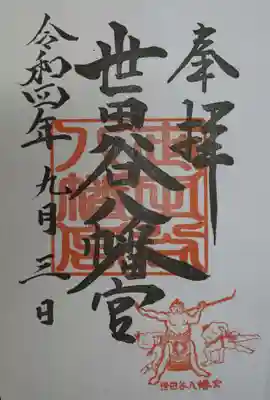 奉拝
世田谷八幡宮
令和四年九月三日
世田谷八幡宮